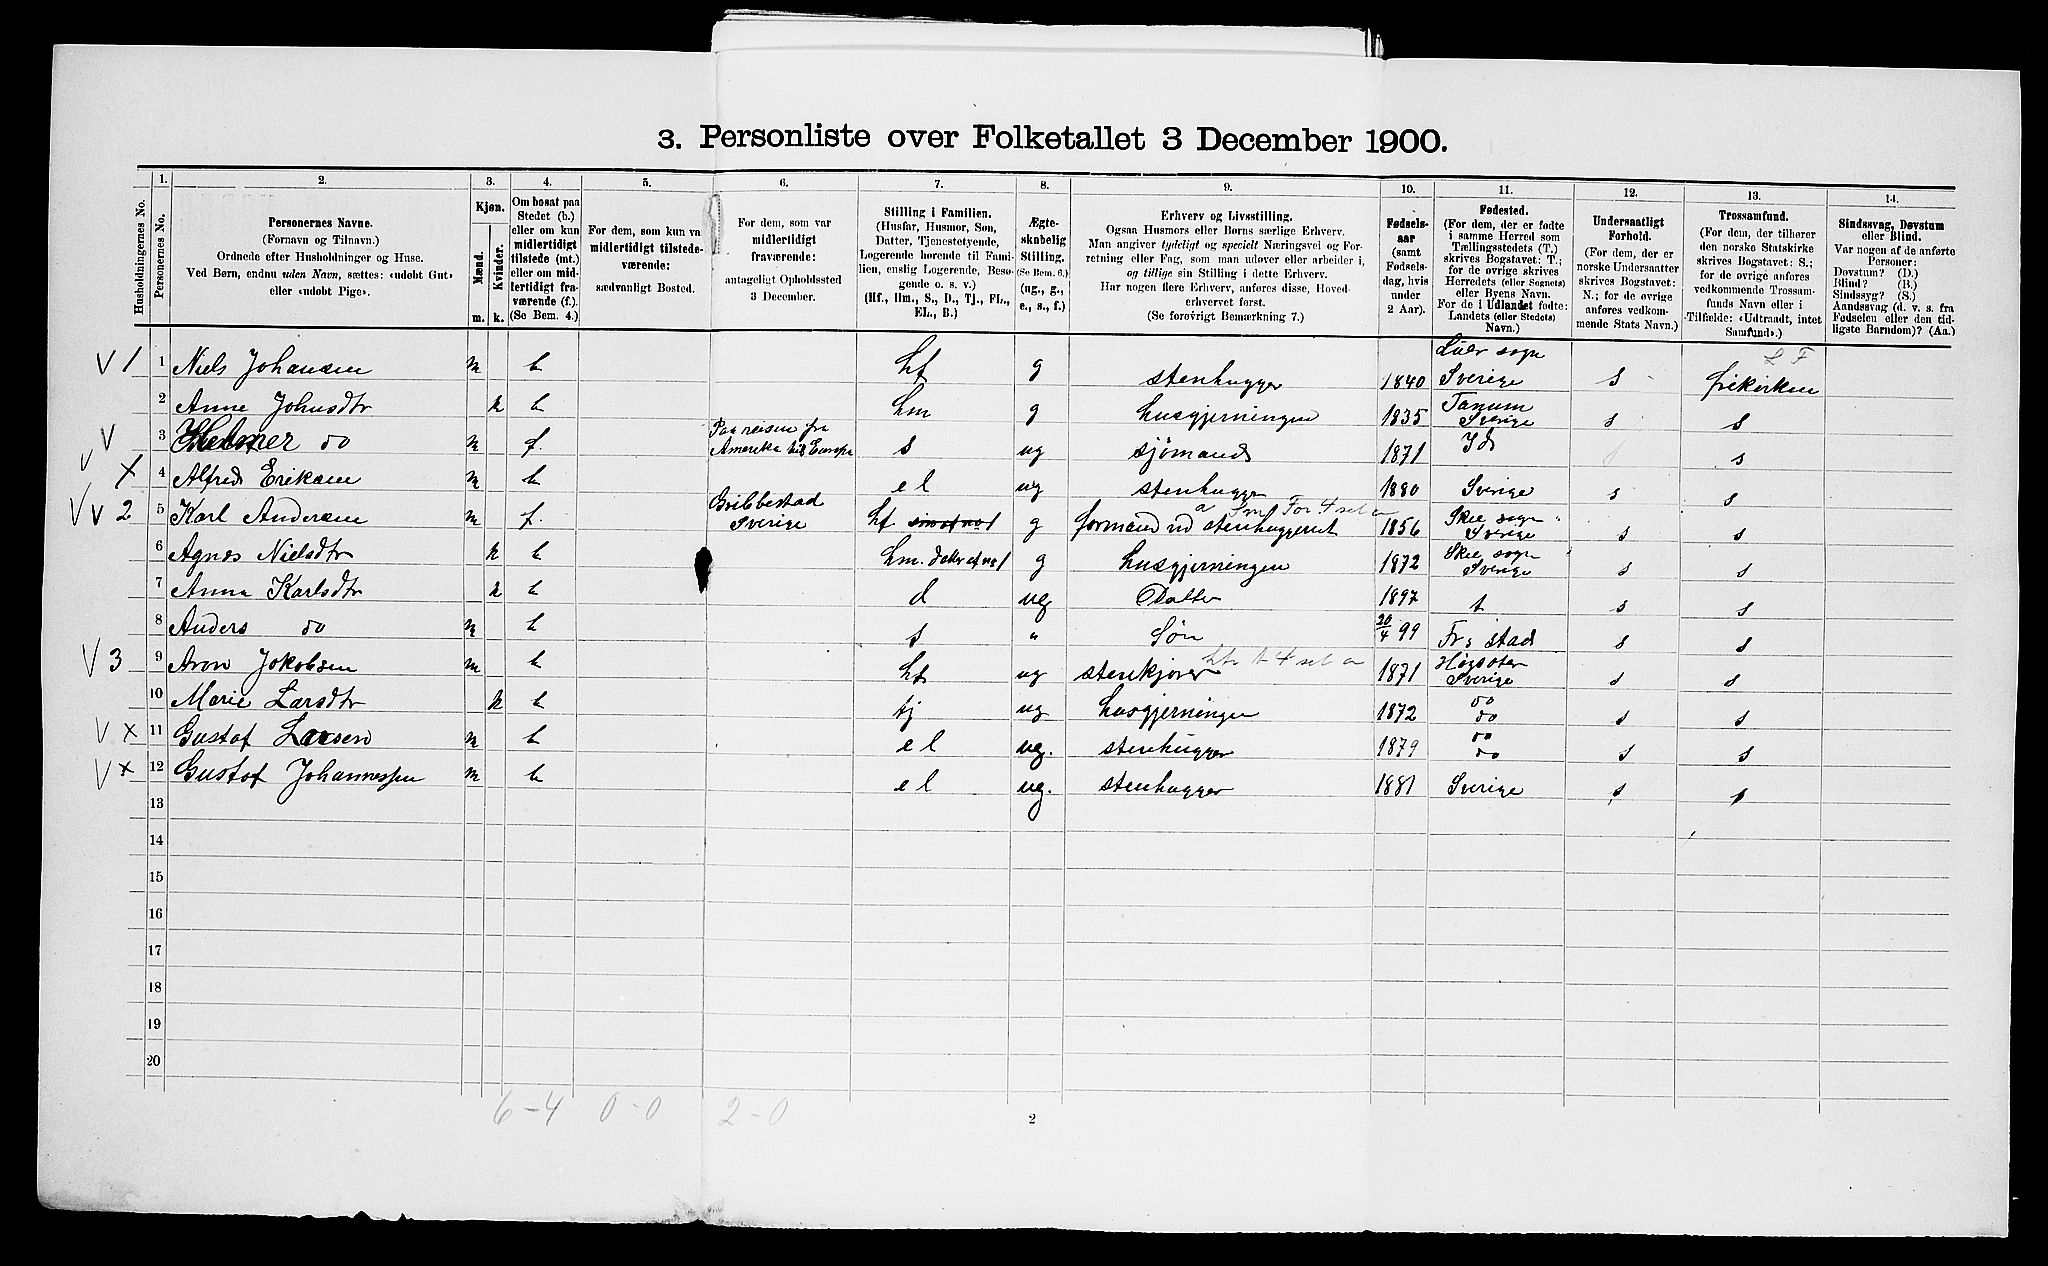 3. Personliste over Folketallet 3 December 1900.
Husholdningernes No.
1. Personernes No.
2. Personernes Navne. (Fornavn og Tilnavn.) Ordnede efter Husholdninger og Huse. Ved Børn, endnu uden Navn, sættes: «udøbt Gut» eller «udøbt Pige».
3. Kjøn. Mænd. m. Kvinder. k.
4. Om bosat paa Stedet (b.) eller om kun midlertidigt tilstede (mt.) eller om midlertidigt fraværende (f.) (Se Bem. 4.)
5. For dem, som kun var midlertidigt tilstedeværende: sædvanligt Bosted.
6. For dem, som var midlertidigt fraværende: antageligt Opholdssted 3 December.
7. Stilling i Familien. (Husfar, Husmor, Søn, Datter, Tjenestetyende, Logerende hørende til Familien, enslig Logerende, Besøgende o. s. v.) (Hf., Hm., S., D., Tj., FL., EL., B.)
8. Ægteskabelig Stilling. (Se Bem. 6.) (ug., g., e., s., f.)
9. Erhverv og Livsstilling. Ogsaa Husmors eller Børns særlige Erhverv. Man angiver tydeligt og specielt Næringsvei og Forretning eller Fag, som man udøver eller arbeider i, og tillige sin Stilling i dette Erhverv. Har nogen flere Erhverv, anføres disse, Hovederhvervet først. (Se forøvrigt Bemærkning 7.)
10. Fødselsaar (samt Fødselsdag, hvis under 2 Aar).
11. Fødested. (For dem, der er fødte i samme Herred som Tællingsstedets (T.) skrives Bogstavet: T.; for de øvrige skrives Herredets (eller Sognets) eller Byens Navn. For de i Udlandet fødte: Landets (eller Stedets) Navn.)
12. Undersaatligt Forhold. (For dem, der er norske Undersaatter skrives Bogstavet: N.; for de øvrige anføres vedkommende Stats Navn.)
13. Trossamfund. (For dem, der tilhører den norske Statskirke skrives Bogstavet: S.; for de øvrige anføres vedkommende Trossamfunds Navn eller i Tilfælde: «Udtraadt, intet Samfund».)
14. Sindssvag, Døvstum eller Blind. Var nogen af de anførte Personer: Døvstum? (D.) Blind? (B.) Sindssyg? (S.) Aandssvag (d. v. s. fra Fødselen eller den tidligste Barndom)? (Aa.)
V 1 1 Niels Johansen m b hf g stenhugger 1840 Sverige s frikirken
2 Anne Johnsdtr k b hm g husgjerningen 1835 Tanum Sverige s s
V 3 Helmer do m f. Paa reisen fra Amerika til Europa s ug sjømand 1871 Id s
V X 4 Alfred Eriksen m b el ug stenhugger 1880 Sverige s s
V V 2 5 Karl Andersen m f. Gribbestad Sverige hf g formand ved stenhuggeriet 1856 Skee sogn Sverige s s
6 Agnes Nielsdtr k b hm. datter af no 1 g husgjerningen 1872 Skee sogn Sverige s s
7 Anna Karlsdtr k b d ug Datter 1897 t s s
8 Anders do m b s " Søn 20/4 99 Fr.stad s s
V 3 9 Aron Jakobsen m b hf ug stenkjører 1871 Sverige s s
10 Marie Larsdtr k b tj ug husgjerningen 1872 do do s s
V X 11 Gustof Larsen m b el ug. stenhugger 1879 do do s s
V X 12 Gustof Johannessen m b el ug. stenhugger 1881 Sverige s s
13
14
15
16
17
18
19
20
6-4 0-0 2-0
2